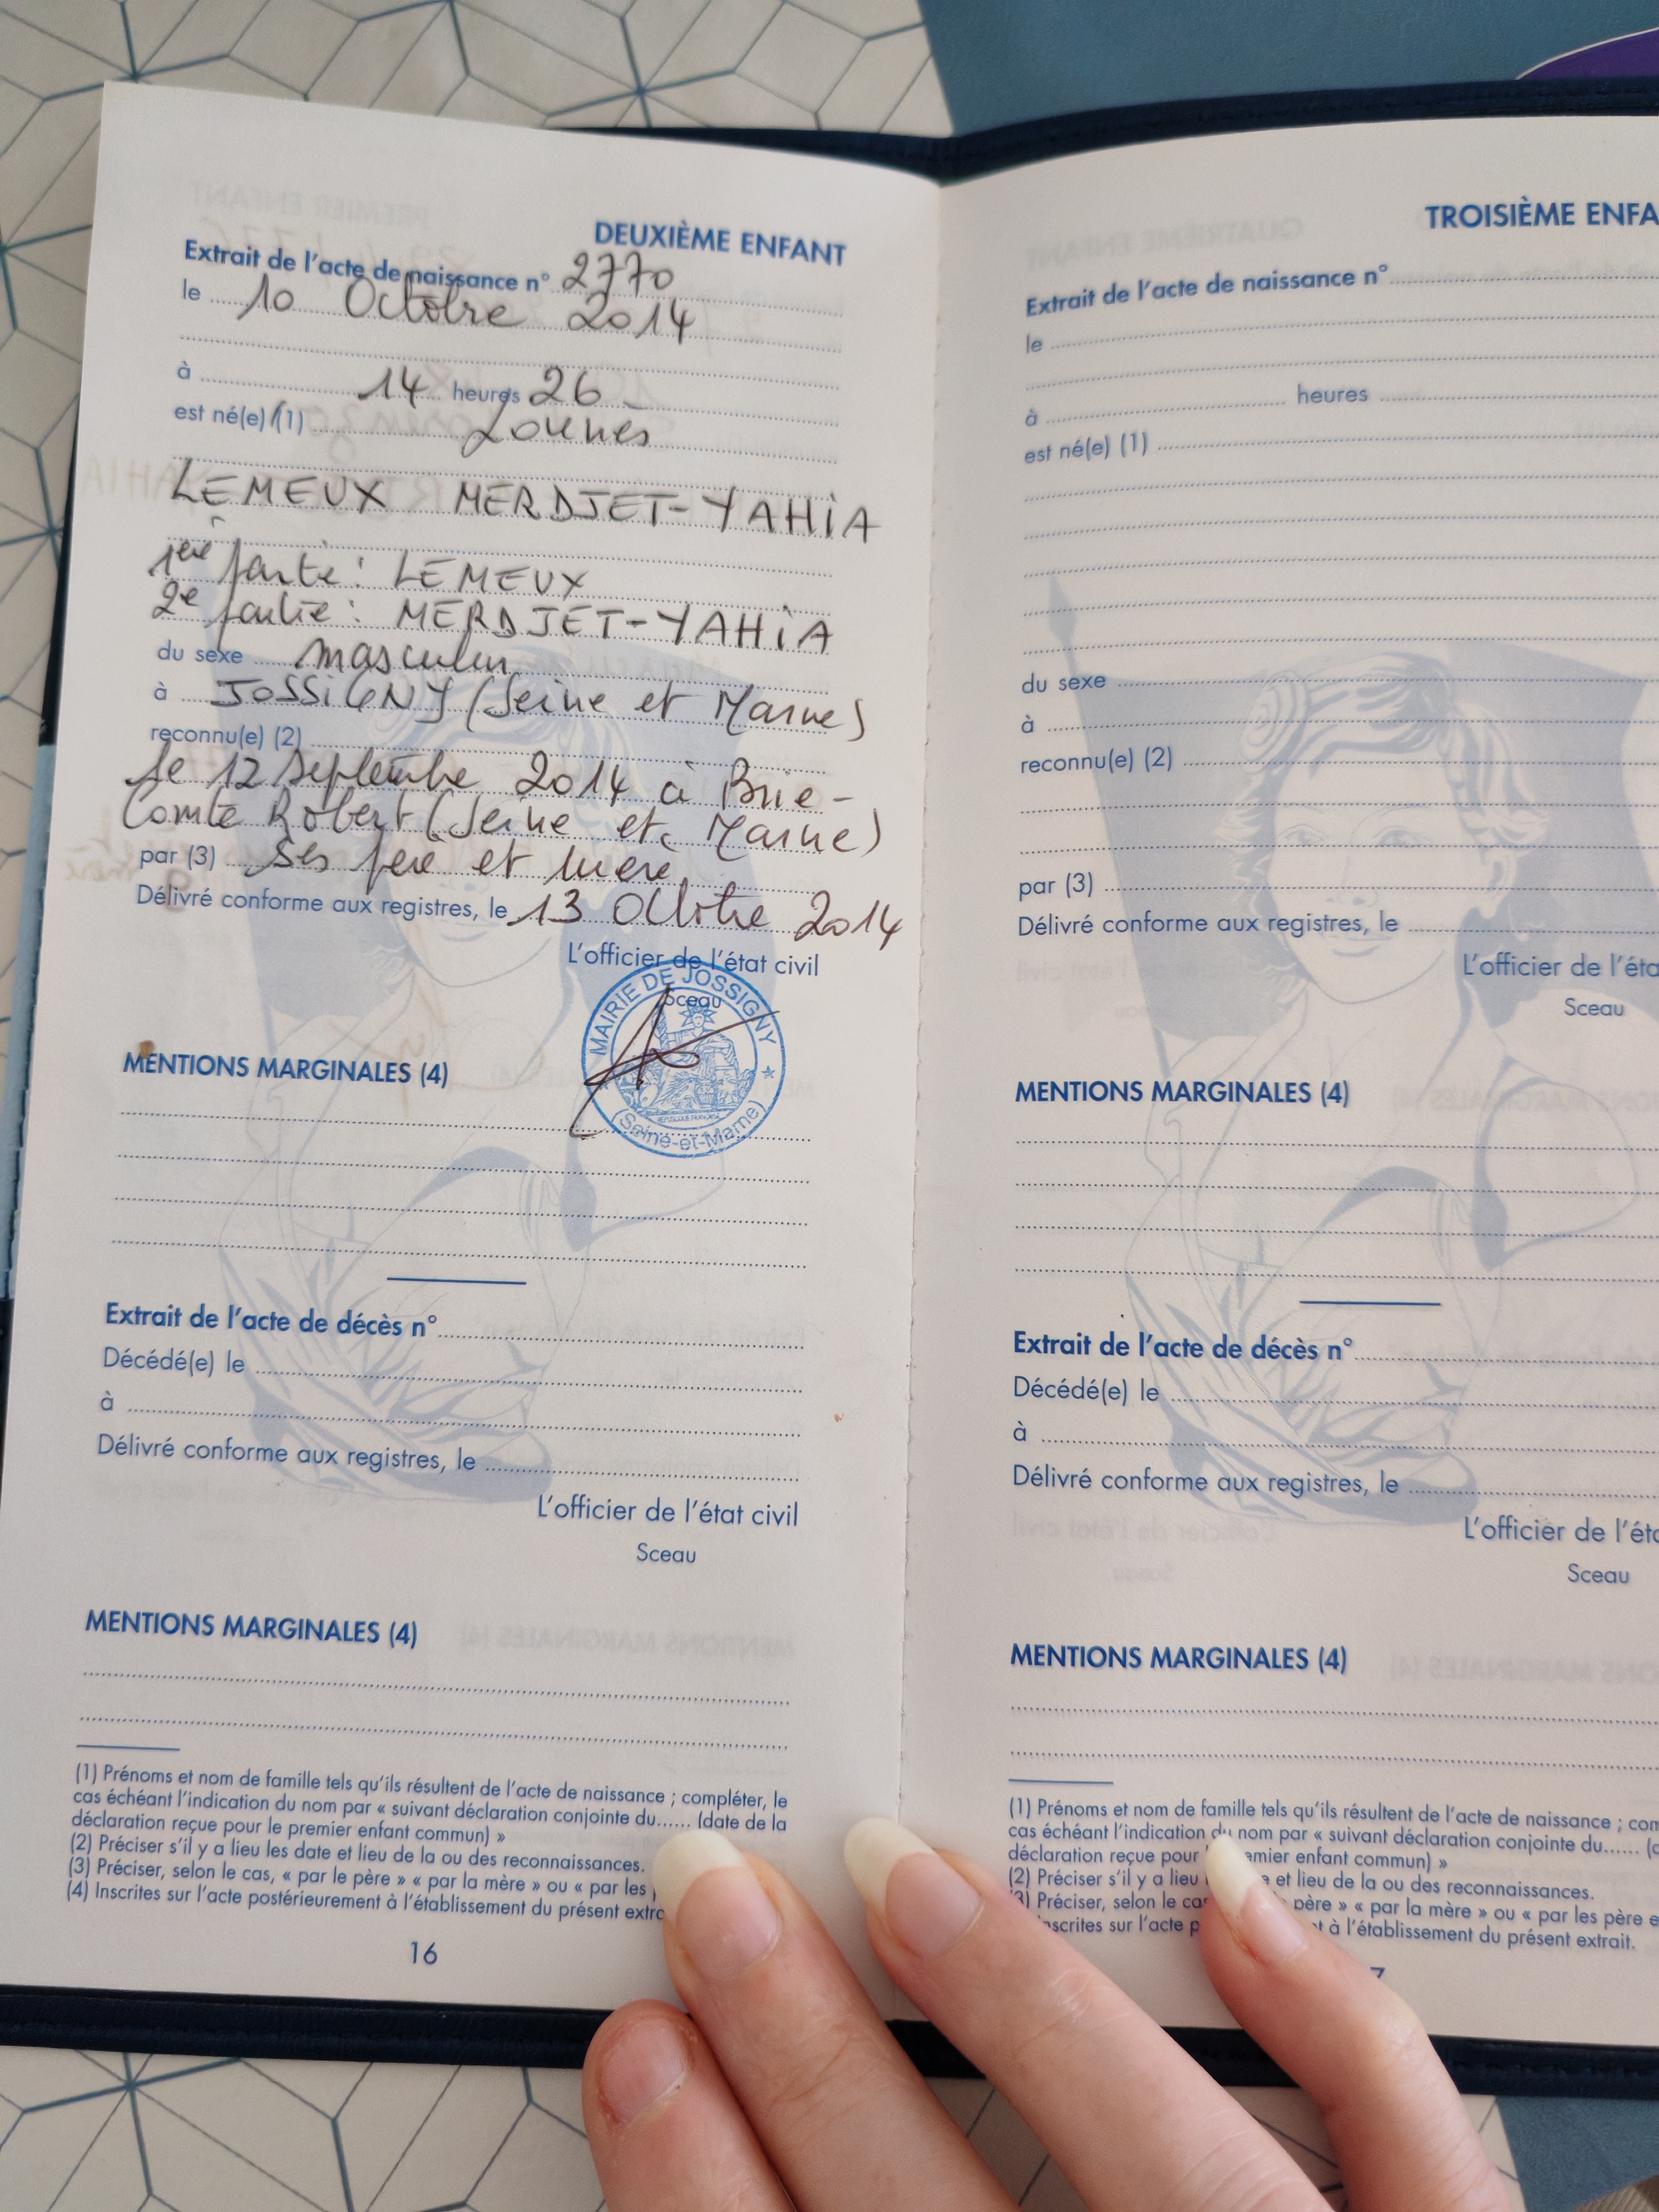 DEUXIÈME ENFANT
Extrait de l'acte de naissance n° 2770
le 10 Octobre 2014
à 14 heures 26
est né(e) (1) Lounes
LEMEUX MERDJET-YAHIA
1ere partie : LEMEUX
2e partie : MERDJET-YAHIA
du sexe masculin
à JOSSIGNY (Seine et Marne)
reconnu(e) (2)
le 12 Septembre 2014 à Brie-
Comte Robert (Seine et Marne)
par (3) ses père et mère
Délivré conforme aux registres, le 13 Octobre 2014
L'officier de l'état civil
Sceau
MAIRIE DE JOSSIGNY
RÉPUBLIQUE FRANÇAISE
(Seine-et-Marne)
MENTIONS MARGINALES (4)
Extrait de l'acte de décès n°
Décédé(e) le
à
Délivré conforme aux registres, le
L'officier de l'état civil
Sceau
MENTIONS MARGINALES (4)
(1) Prénoms et nom de famille tels qu'ils résultent de l'acte de naissance ; compléter, le
cas échéant l'indication du nom par « suivant déclaration conjointe du...... (date de la
déclaration reçue pour le premier enfant commun) »
(2) Préciser s'il y a lieu les date et lieu de la ou des reconnaissances.
(3) Préciser, selon le cas, « par le père » « par la mère » ou « par les
(4) Inscrites sur l'acte postérieurement à l'établissement du présent extra
16
TROISIÈME ENFA
Extrait de l'acte de naissance n°
le
à heures
est né(e) (1)
du sexe
à
reconnu(e) (2)
par (3)
Délivré conforme aux registres, le
L'officier de l'éta
Sceau
MENTIONS MARGINALES (4)
Extrait de l'acte de décès n°
Décédé(e) le
à
Délivré conforme aux registres, le
L'officier de l'éta
Sceau
MENTIONS MARGINALES (4)
(1) Prénoms et nom de famille tels qu'ils résultent de l'acte de naissance ; com
cas échéant l'indication du nom par « suivant déclaration conjointe du...... (d
déclaration reçue pour emier enfant commun) »
(2) Préciser s'il y a lieu e et lieu de la ou des reconnaissances.
3) Préciser, selon le cas père » « par la mère » ou « par les père e
nscrites sur l'acte p t à l'établissement du présent extrait.
7